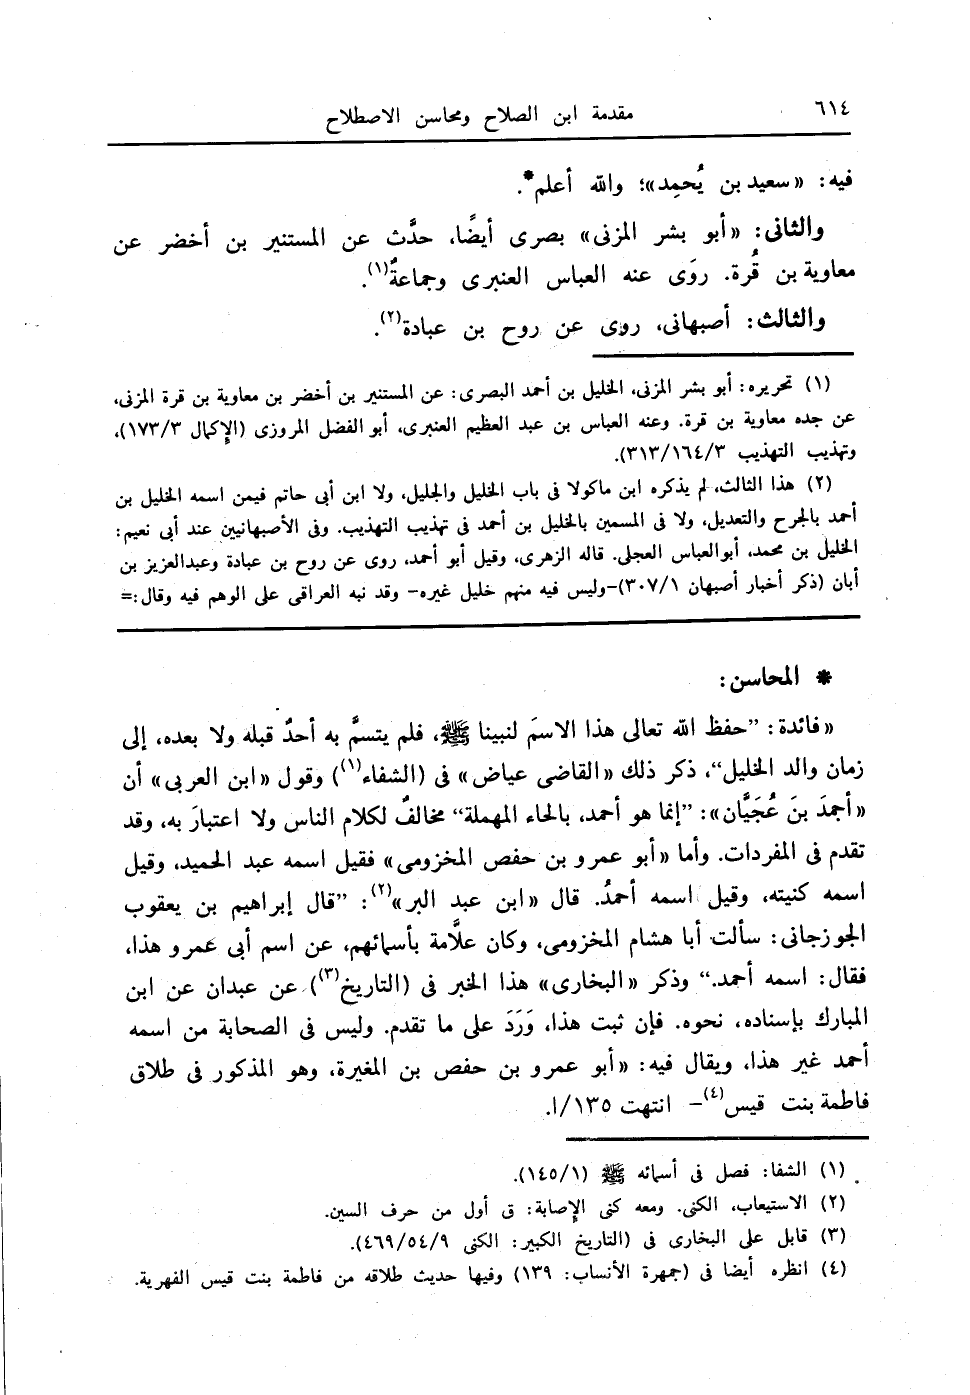 ٦١٤
مقدمة ابن الصلاح ومحاسن الاصطلاح
فيه: «سعيد بن يُحمِد»؛ والله أعلم*.
والثانى: «أبو بشر المزنى» بصرى أيضًا، حدَّث عن المستنير بن أخضر عن
معاوية بن قُرة. روَى عنه العباس العنبرى وجماعةٌ(١).
والثالث: أصبهانى، روى عن روح بن عبادة(٢).
(١) تحريره: أبو بشر المزنى، الخليل بن أحمد البصرى: عن المستنير بن أخضر بن معاوية بن قرة المزنى،
عن جده معاوية بن قرة. وعنه العباس بن عبد العظيم العنبرى، أبو الفضل المروزى (الإكمال ١٧٣/٣)،
وتهذيب التهذيب ٣١٣/١٦٤/٣).
(٢) هذا الثالث، لم يذكره ابن ماكولا فى باب الخليل والجليل، ولا ابن أبى حاتم فيمن اسمه الخليل بن
أحمد بالجرح والتعديل، ولا فى المسمين بالخليل بن أحمد فى تهذيب التهذيب. وفى الأصبهانيين عند أبى نعيم:
الخليل بن محمد، أبوالعباس العجلى. قاله الزهرى، وقيل أبو أحمد، روى عن روح بن عبادة وعبدالعزيز بن
أبان (ذكر أخبار أصبهان ٣٠٧/١)-وليس فيه منهم خليل غيره- وقد نبه العراقى على الوهم فيه وقال:=
* المحاسن:
«فائدة: ”حفظ الله تعالى هذا الاسمَ لنبينا ﷺ، فلم يتسمَّ به أحدٌ قبله ولا بعده، إلى
زمان والد الخليل“، ذكر ذلك «القاضى عياض» فى (الشفاء(١)) وقول «ابن العربى» أن
«أحمدَ بنَ عُجَيَّان»: ”إنما هو أحمد، بالحاء المهملة“ مخالفٌ لكلام الناس ولا اعتبارَ به، وقد
تقدم فى المفردات. وأما «أبو عمرو بن حفص المخزومى» فقيل اسمه عبد الحميد، وقيل
اسمه كنيته، وقيل اسمه أحمدُ. قال «ابن عبد البر»(٢): ”قال إبراهيم بن يعقوب
الجوزجانى: سألت أبا هشام المخزومى، وكان علاَّمة بأسمائهم، عن اسم أبى عمرو هذا،
فقال: اسمه أحمد.“ وذكر «البخارى» هذا الخبر فى (التاريخ(٣)) عن عبدان عن ابن
المبارك بإسناده، نحوه. فإن ثبت هذا، وَرَدَ على ما تقدم. وليس فى الصحابة من اسمه
أحمد غير هذا، ويقال فيه: «أبو عمرو بن حفص بن المغيرة، وهو المذكور فى طلاق
فاطمة بنت قيس(٤)- انتهت ١٣٥/ا.
(١) الشفا: فصل فى أسمائه ﷺ (١٤٥/١).
(٢) الاستيعاب، الكنى. ومعه كنى الإصابة: ق أول من حرف السين.
(٣) قابل على البخارى فى (التاريخ الكبير: الكنى ٤٦٩/٥٤/٩).
(٤) انظره أيضا فى (جمهرة الأنساب: ١٣٩) وفيها حديث طلاقه من فاطمة بنت قيس الفهرية.